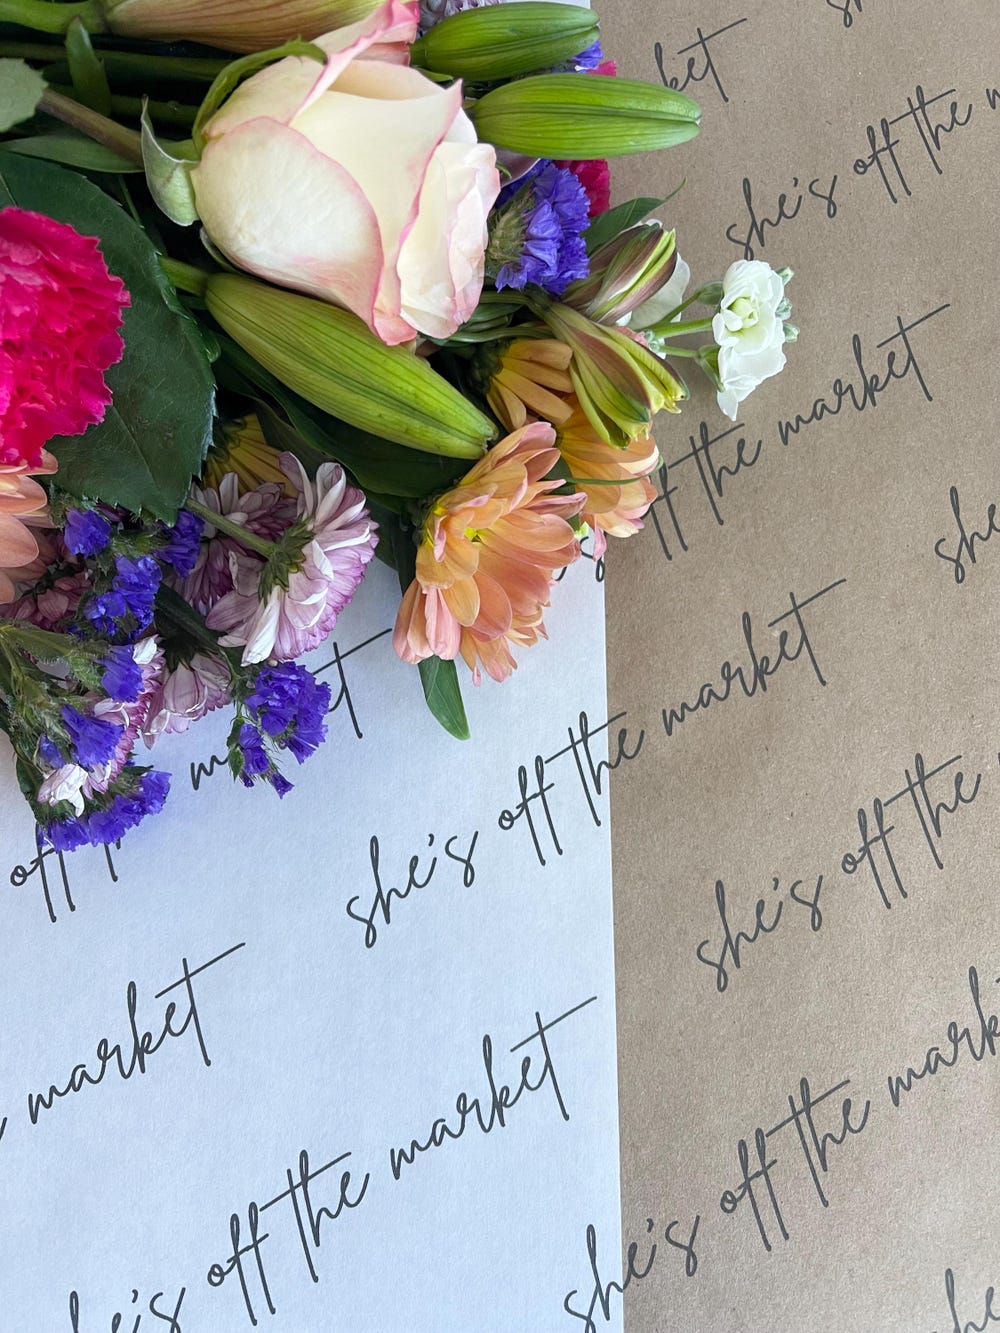 ket
she's off the m
off the market
she
s
m t
she's off the market
off t
she's off the
market
she's off the market
she's off the market
he's off the market
he